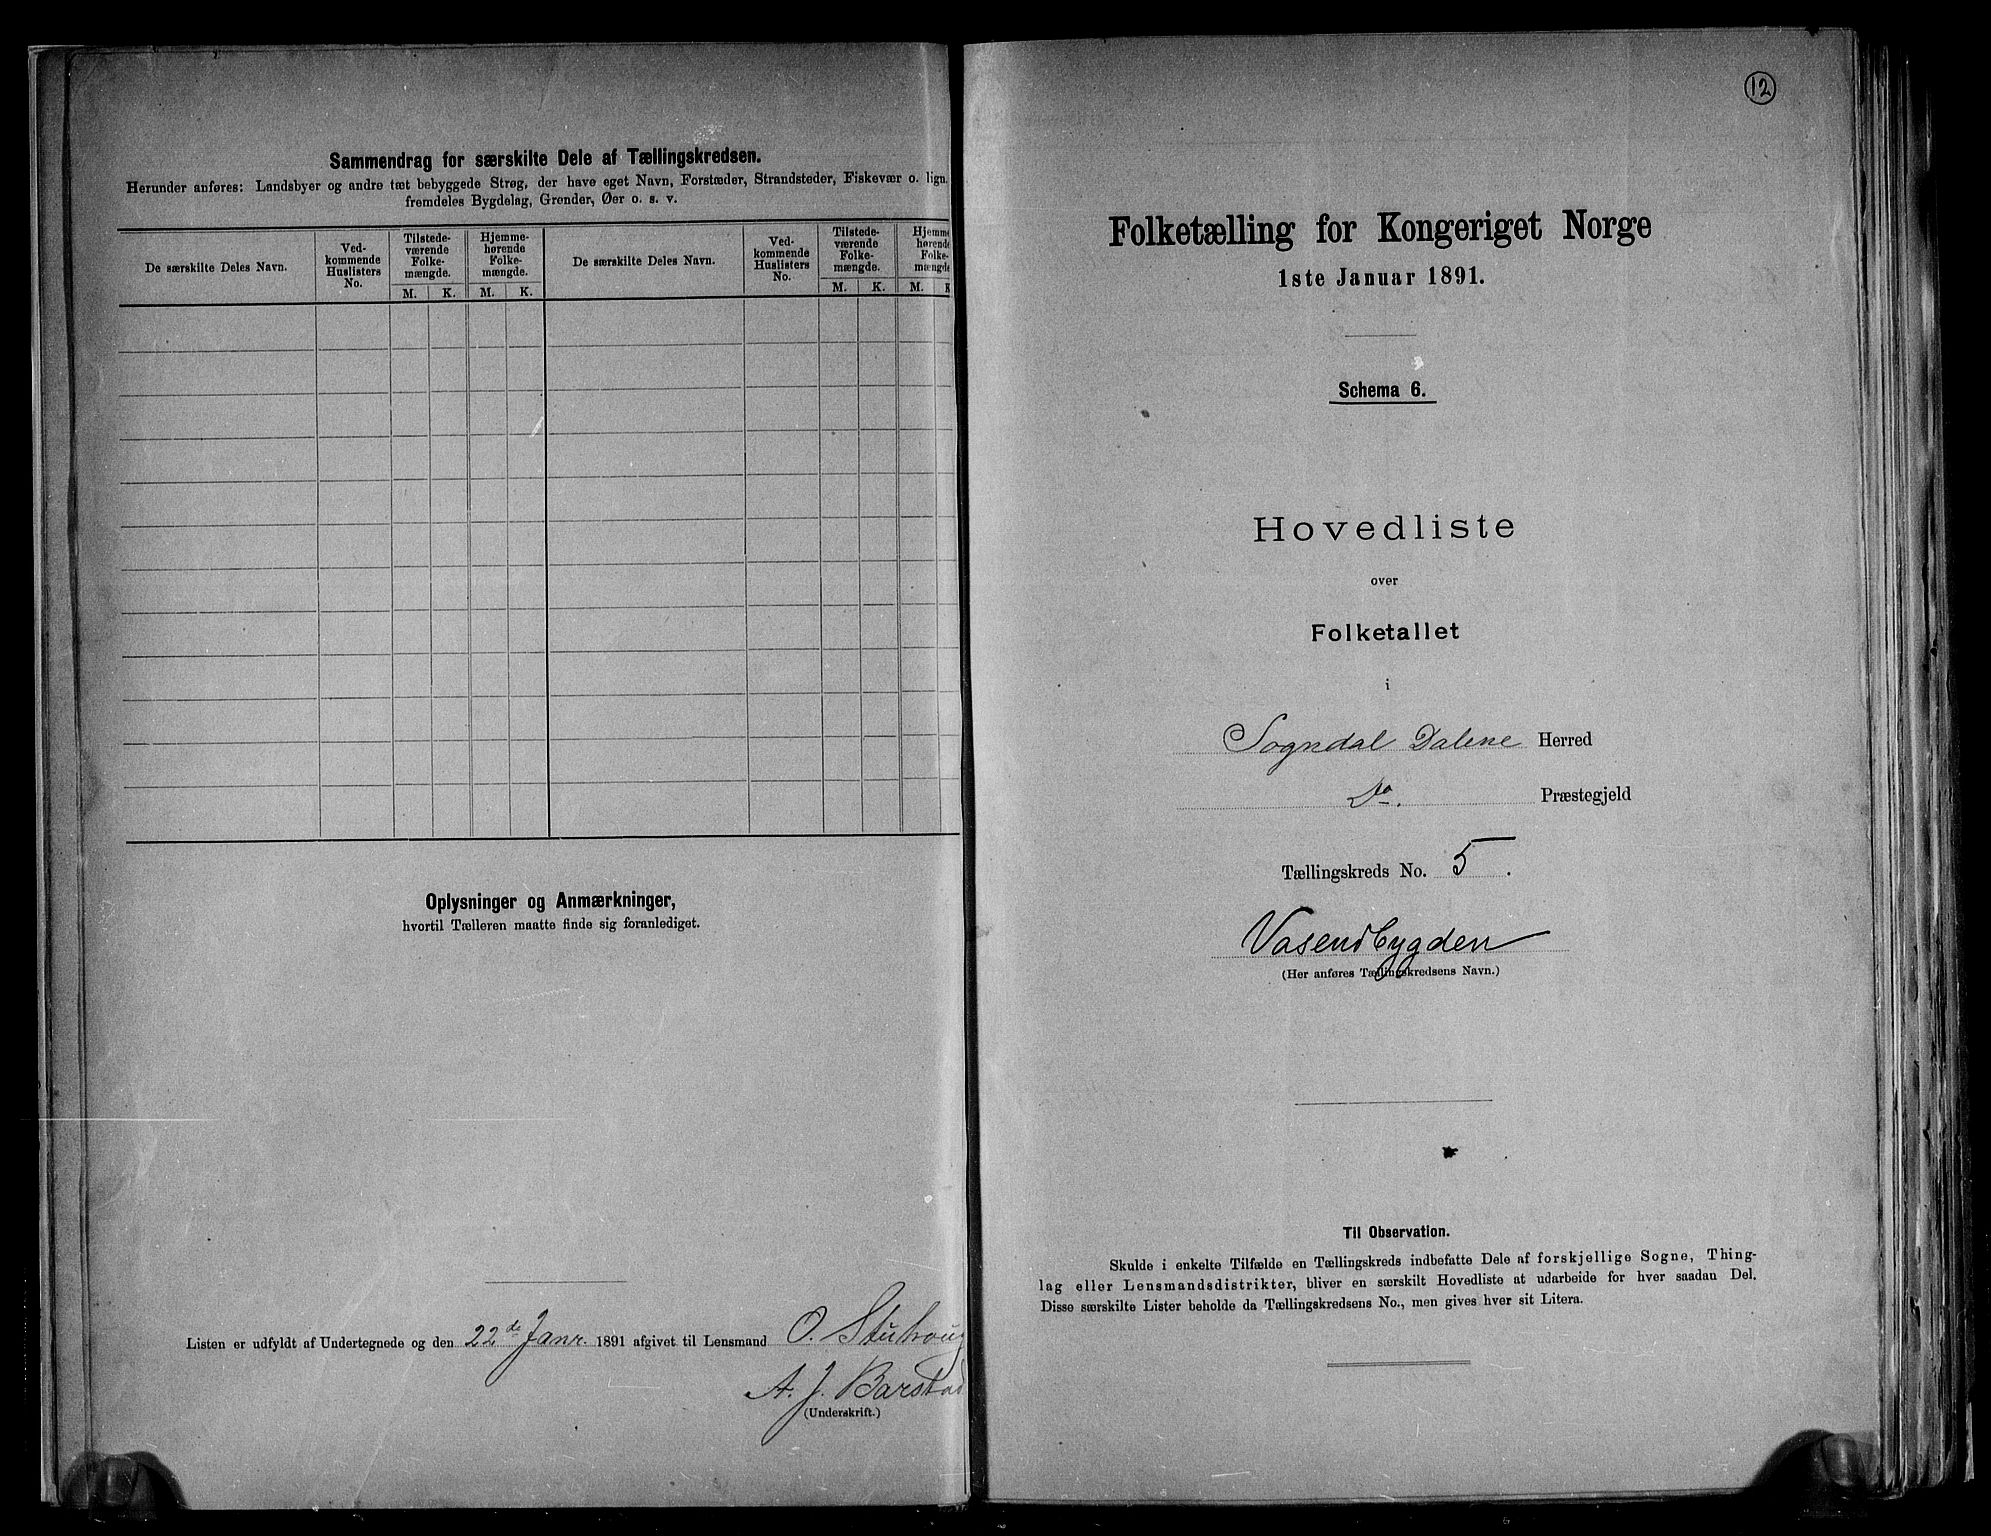 Sammendrag for særskilte Dele af Tællingskredsen.
Herunder anføres: Landsbyer og andre tæt bebyggede Strøg, der have eget Navn, Forstæder, Strandsteder, Fiskevær o. lign.
fremdeles Bygdelag, Grender, Øer o. s. v.
De særskilte Deles Navn.
Ved-
kommende
Huslisters
No.
Tilstede-
værende
Folke-
mængde.
M. K.
Hjemme-
hørende
Folke-
mængde.
M. K.
De særskilte Deles Navn.
Ved-
kommende
Huslisters
No.
Tilstede-
værende
Folke-
mængde.
M. K.
Hjemme
hørende
Folke-
mængde
M. K
Oplysninger og Anmærkninger,
hvortil Tælleren maatte finde sig foranlediget.
Listen er udfyldt af Undertegnede og den 22de Janr. 1891 afgivet til Lensmand O.
A. J. Barstad
(Underskrift.)
12
Folketælling for Kongeriget Norge
1ste Januar 1891.
Schema 6.
Hovedliste
over
Folketallet
i
Sogndal Dalene Herred
Do. Præstegjeld
Tællingskreds No. 5.
Vasendbygden
(Her anføres Tællingskredsens Navn.)
Til Observation.
Skulde i enkelte Tilfælde en Tællingskreds indbefatte Dele af forskjellige Sogne, Thing-
lag eller Lensmandsdistrikter, bliver en særskilt Hovedliste at udarbeide for hver saadan Del.
Disse særskilte Lister beholde da Tællingskredsens No., men gives hver sit Litera.